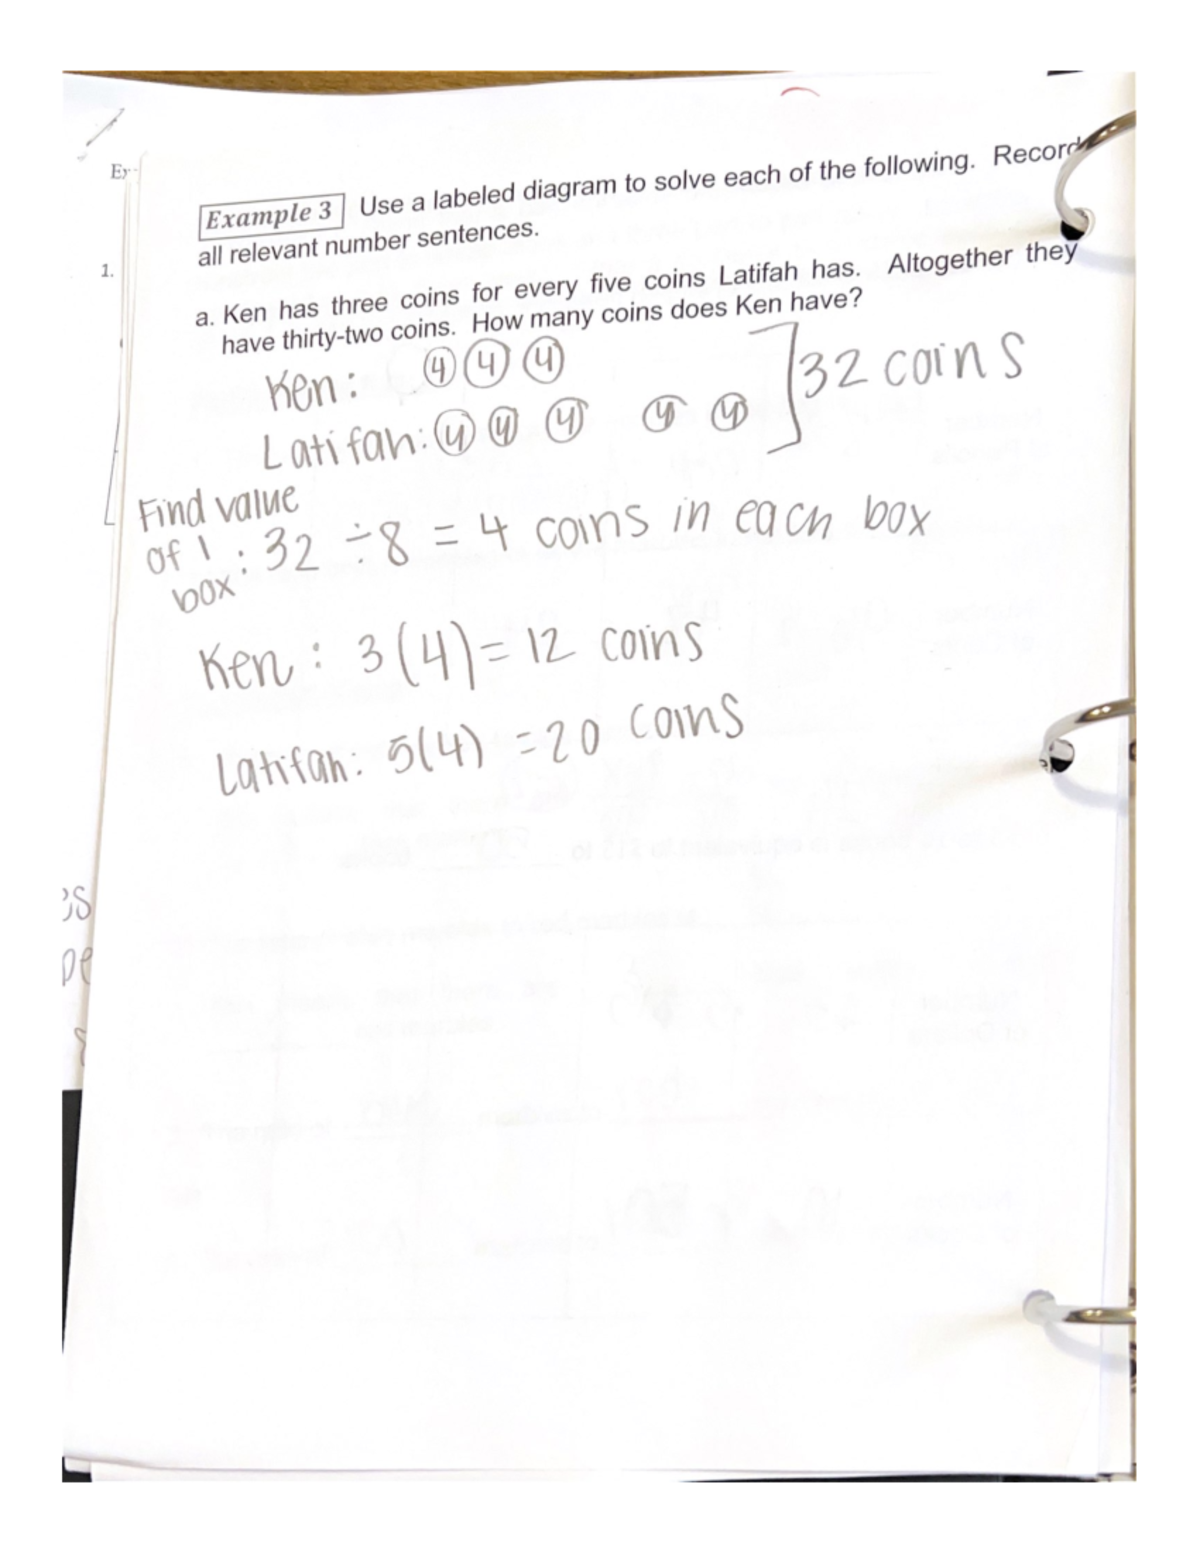 Ex
Example 3 Use a labeled diagram to solve each of the following. Record
all relevant number sentences.
1.
a. Ken has three coins for every five coins Latifah has. Altogether they
have thirty-two coins. How many coins does Ken have?
Ken: 4 4 4 ] 32 coins
Latifah: 4 4 4 4 4
Find value
of 1 : 32 ÷ 8 = 4 coins in each box
box
Ken : 3(4) = 12 coins
Latifah: 5(4) = 20 coins
es
pe